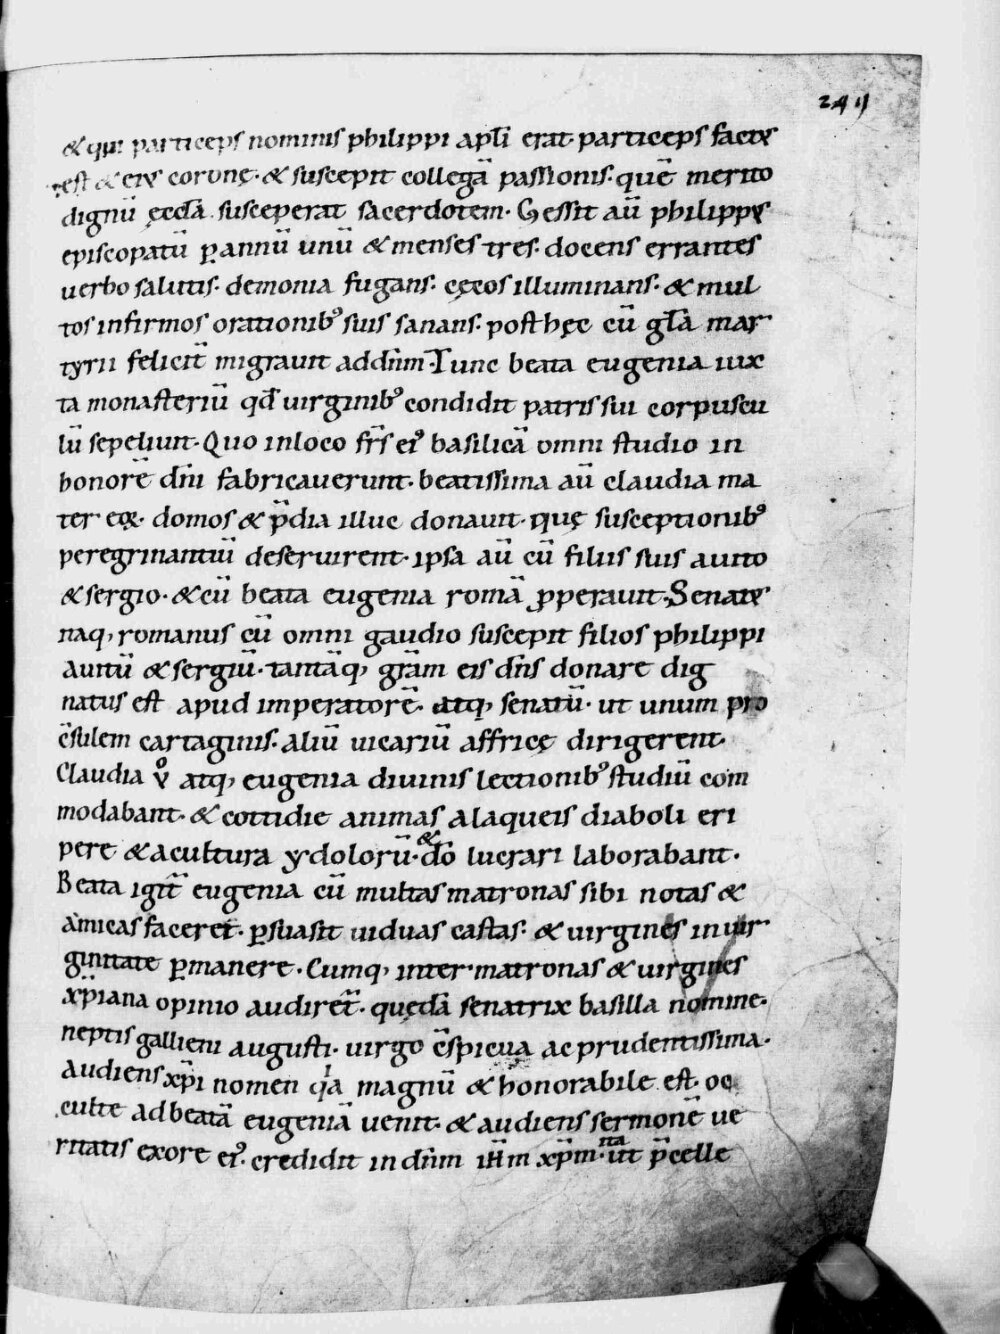 241
& qui particeps nominis philippi apƚi erat· particeps factꝰ
est & eiꝰ coronę· & suscepit collegā passionis· quē merito
dignū ęccƚā susceperat sacerdotem· Gessit aū philippꝰ
episcopatū ꝑ annū unū & menses tres· docens errantes
uerbo salutis· demonia fugans· cęcos illuminans· & mul
tos infirmos orationibꝰ suis sanans· post hęc cū gƚā mar
tyrii felicit̄ migrauit ad dn̄m· Tunc beata eugenia iux
ta monasteriū qđ uirginibꝰ condidit patris sui corpuscu
lū sepeliunt· Quo in loco fr̄s eiꝰ basilicā omni studio in
honorē dn̄i fabricauerunt· beatissima aū claudia ma
ter eoꝝ· domos & p̄dia illuc donauit· quę susceptionibꝰ
peregrinantiū deseruirent· ipsa aū cū filiis suis auito
& sergio· & cū beata eugenia romā ꝓperauit· Senatꝰ
naq, romanus cū omni gaudio suscepit filios philippi
auitū & sergiū· tantāq, gr̄am eis dn̄s donare dig
natus est apud imperatorē· atq, senatū· ut unum pro
c̄sulem cartaginis· aliū uicariū affricę dirigerent·
Claudia v̊ atq, eugenia diuinis lectionibꝰ studiū com
modabant· & cottidie animas a laqueis diaboli eri
pere & a cultura ydolorū· & do̅ lucrari laborabant·
Beata igit̄ eugenia cū multas matronas sibi notas &
amicas faceret· ꝑsuasit uiduas castas· & uirgines in uir
ginitate ꝑmanere· Cumq, inter matronas & uirgines
xp̄iana opinio audiret̄· quędā senatrix basilla nomine·
neptis gallieni augusti· uirgo c̄spicua ac prudentissima·
audiens xp̄i nomen qͥa magnū & honorabile est· oc
culte ad beatā eugeniā uenit· & audiens sermonē ue
ritatis ex ore eiꝰ· credidit in dn̄m ih̄m xp̄m· ita ut p̄celle